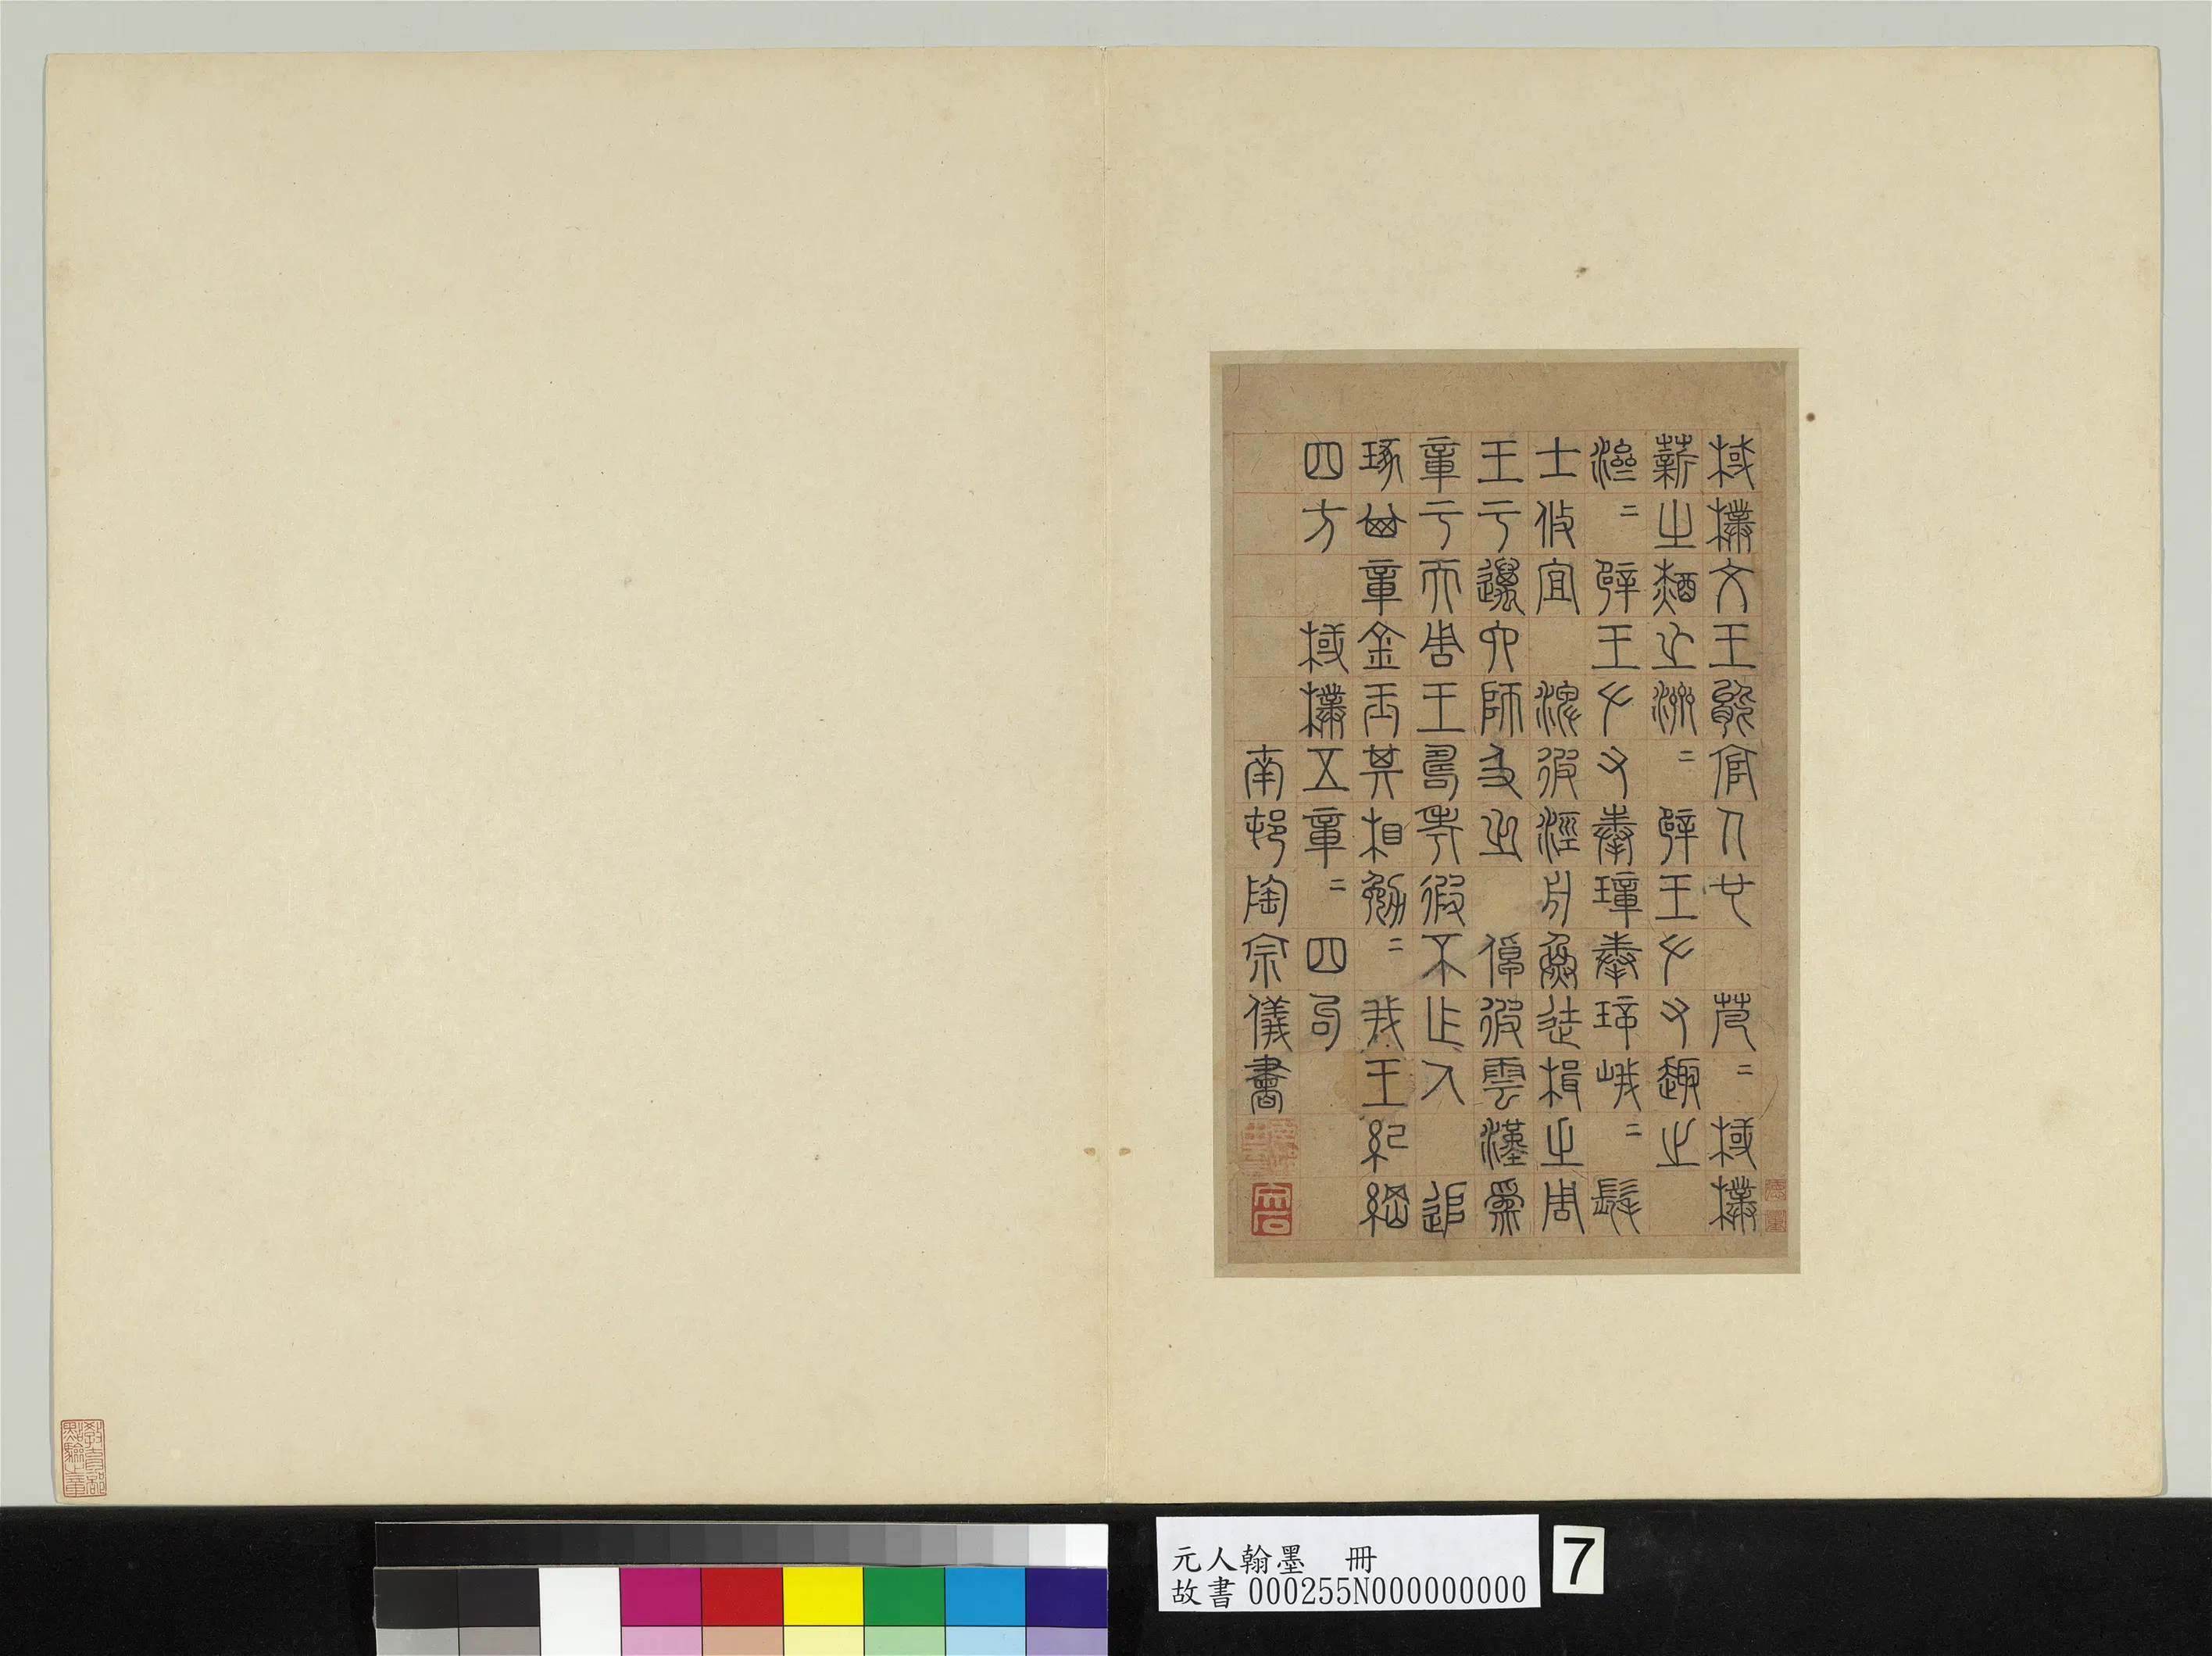 棫樸文王能官人也　芃二棫樸
薪之槱之濟二辟王左右趣之
濟二辟王左右奉璋奉璋峨二髦
士攸宜　淠彼涇舟烝徒楫之周
王于邁六師及之　倬彼雲漢爲
章于天周王壽考遐不作人　追
琢其章金玉其相勉二我王紀綱
四方　棫樸五章二四句
南邨陶宗儀書
教育部點驗之章
元人翰墨　冊
故書000255N000000000
7